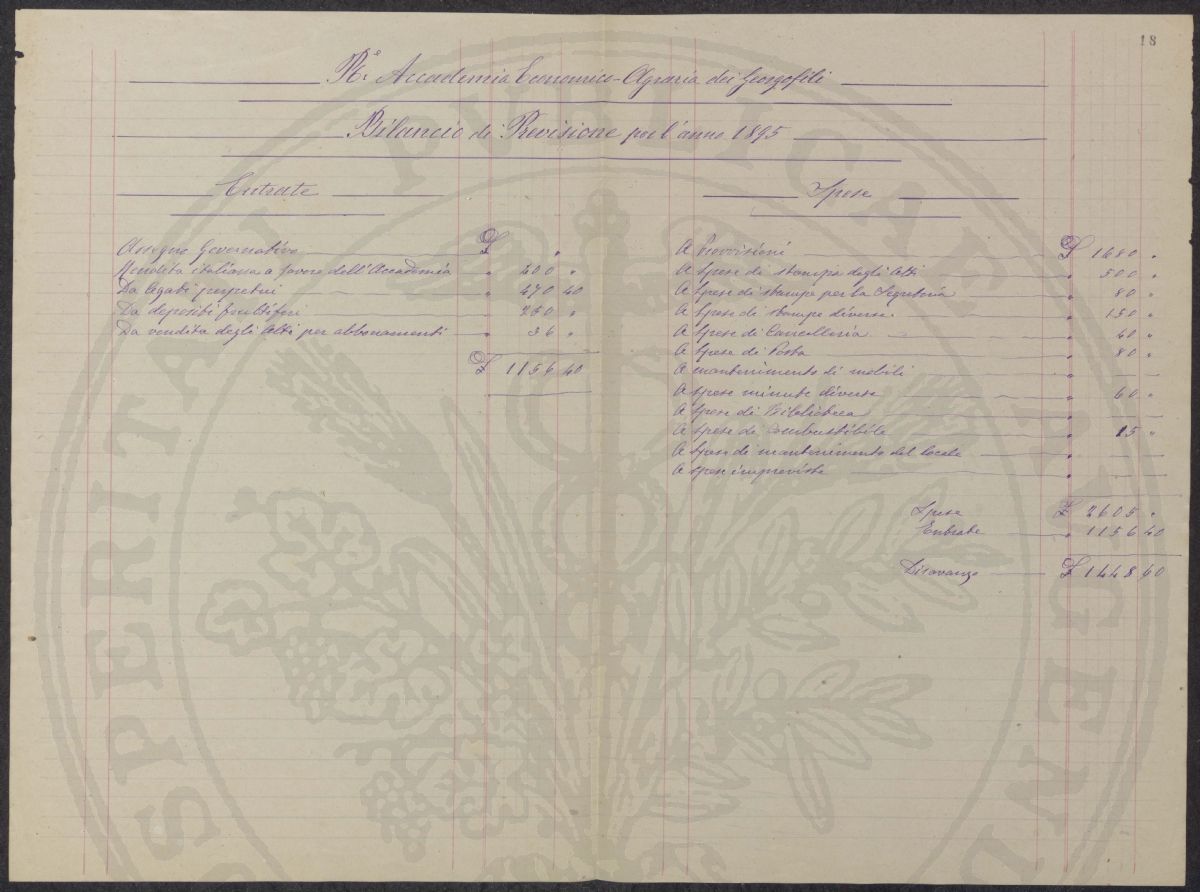 18
R.e Accademia Economico-Agraria dei Georgofili
Bilancio di Previsione per l'anno 1895
Entrate
Assegno Governativo £ "
Rendita italiana a favore dell'Accademia " 400 "
Da legati perpetui " 470 40
Da depositi fruttiferi " 250 "
Da vendita degli Atti per abbonamenti " 36 "
£ 1156 40
Spese
A Provvisioni £ 1680 "
A Spese di stampa degli Atti " 500 "
A Spese di stampe per la Segreteria " 80 "
A Spese di stampe diverse " 150 "
A Spese di Cancelleria " 40 "
A Spese di Posta " 80 "
A mantenimento di mobili "
A Spese minute diverse " 60 "
A Spese di Biblioteca "
A Spese di Combustibile " 15 "
A Spese di mantenimento del locale "
A Spese impreviste "
Spese £ 2605 "
Entrate " 1156 40
Disavanzo £ 1448 60
SPERITATI PVBLICAE AVGEND